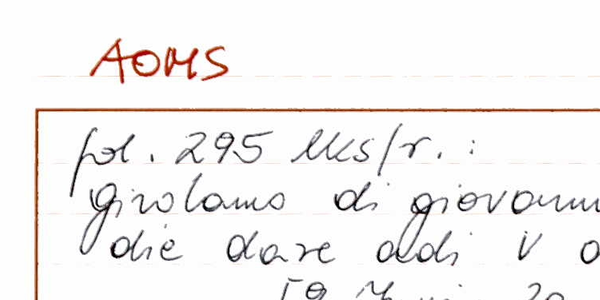 AOMS
fol. 295 lks/r. :
girolamo di giovann
die dare adi V